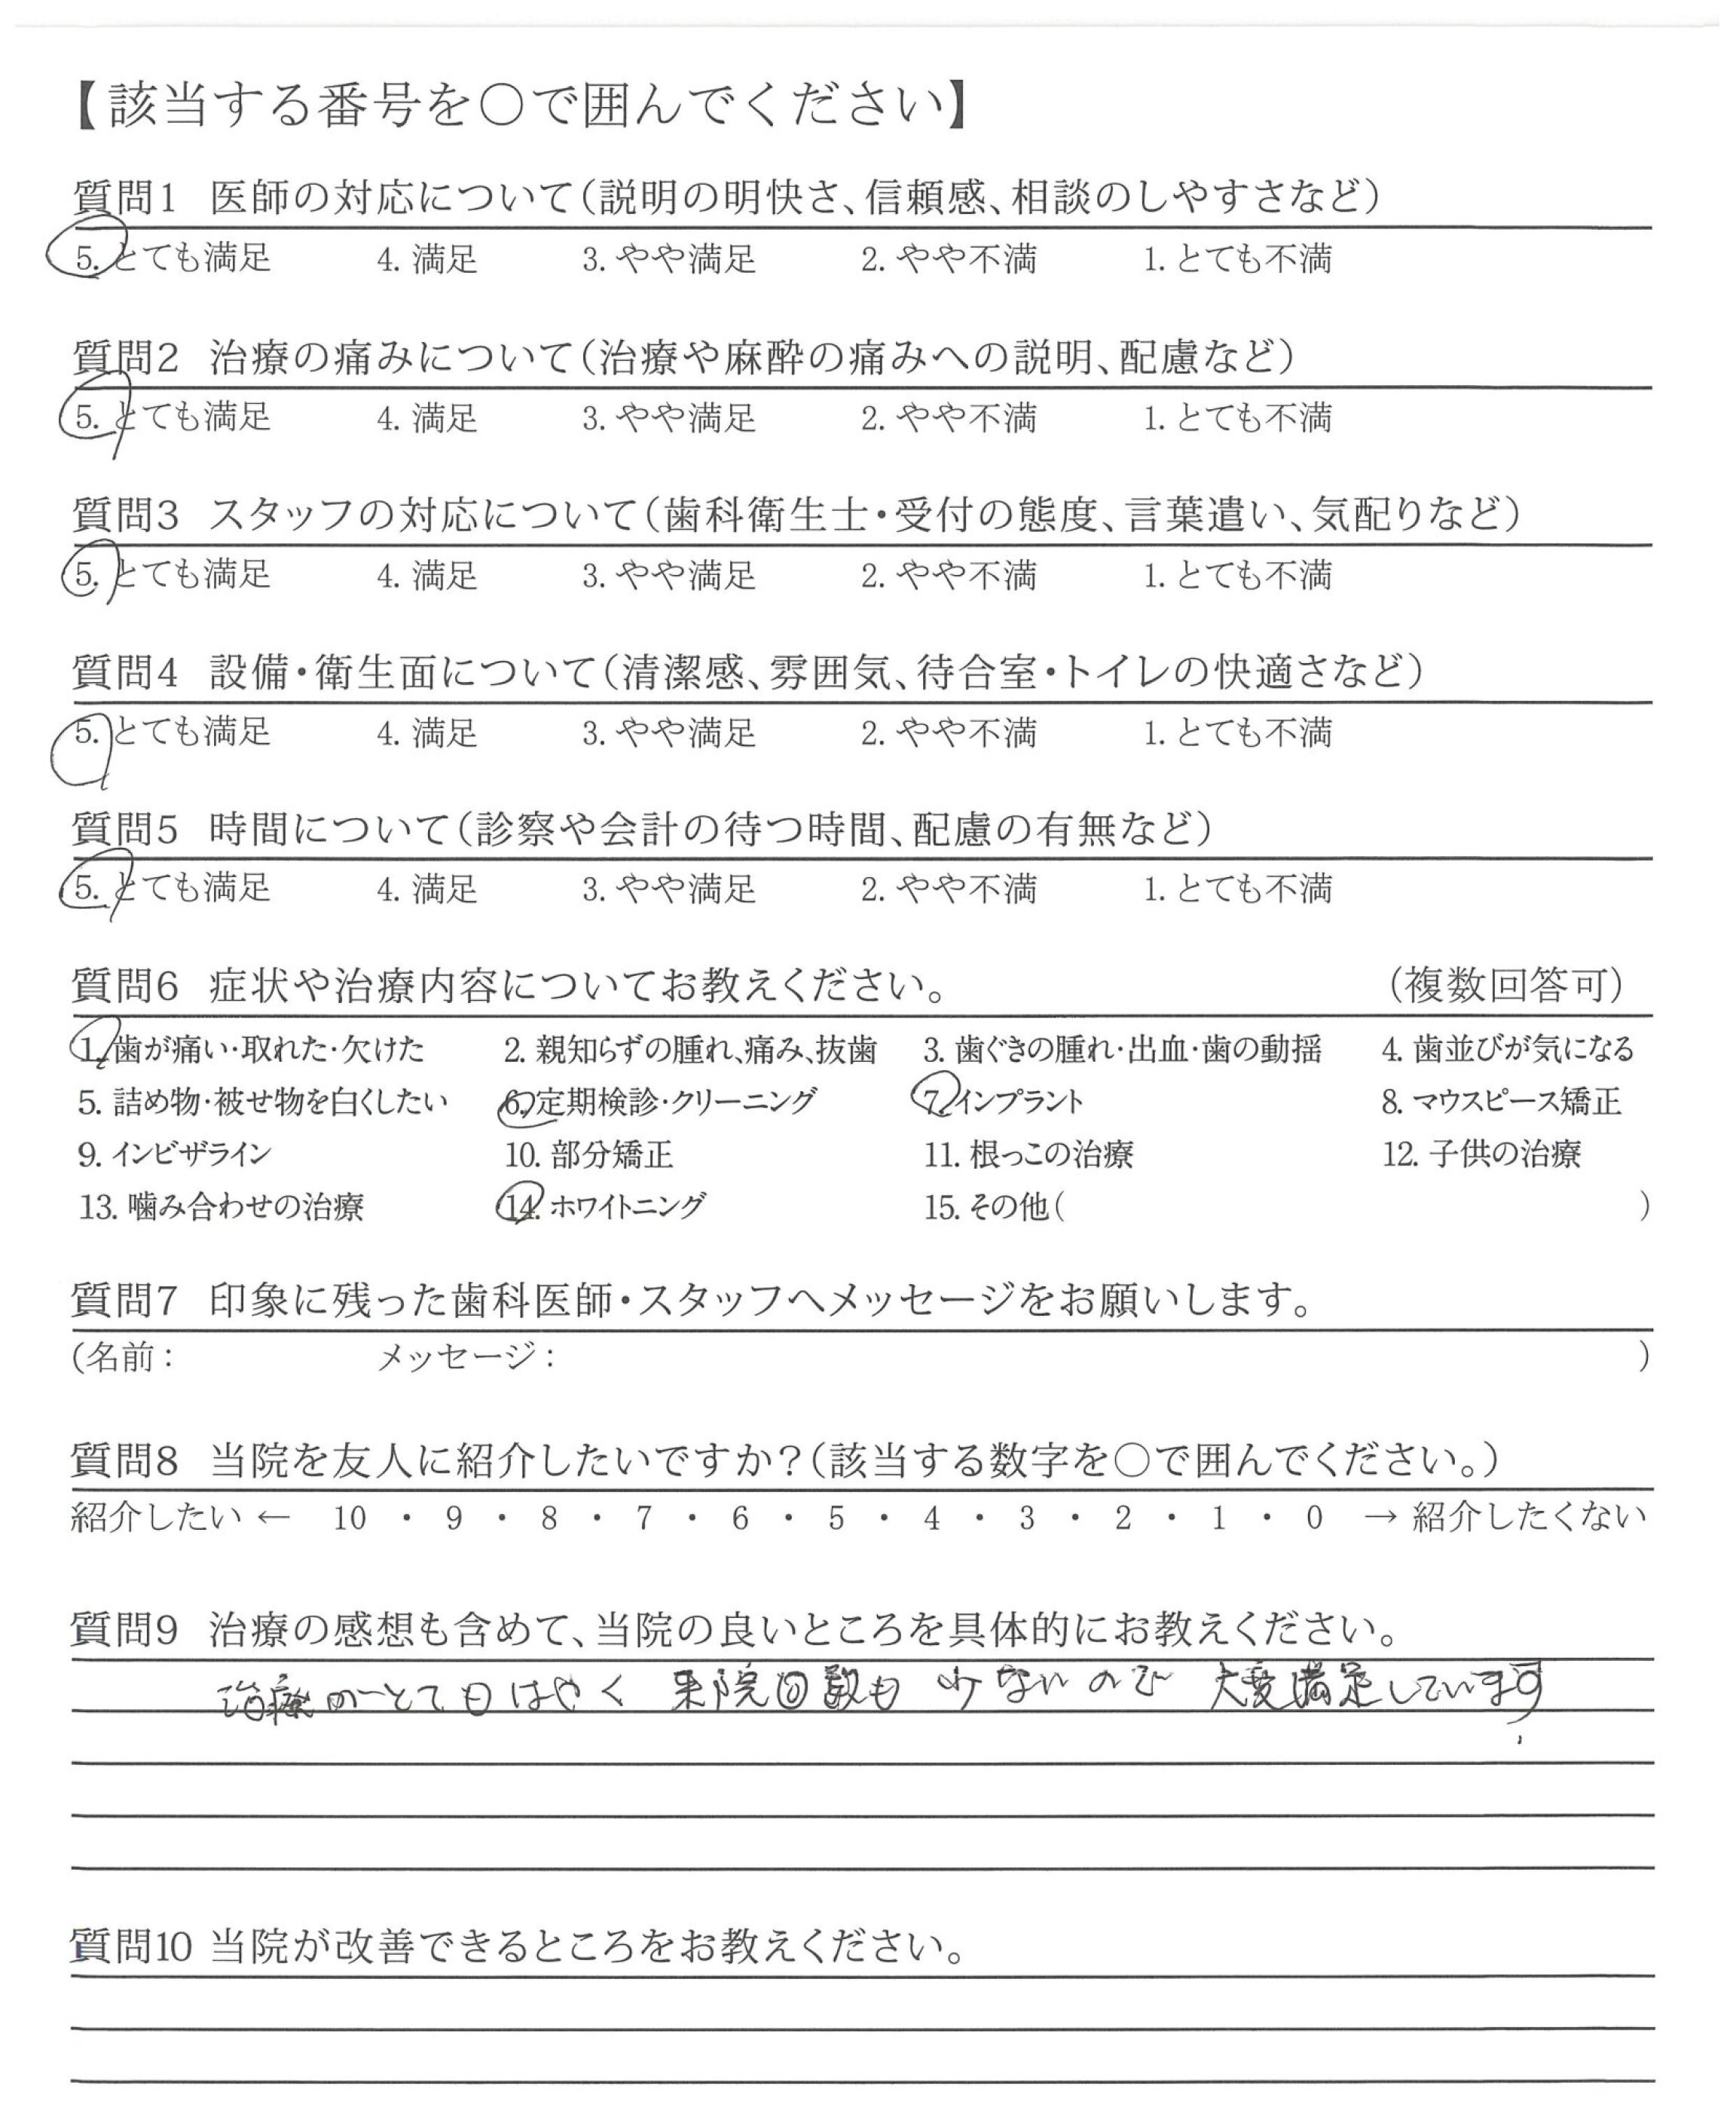 【該当する番号を○で囲んでください】
質問1 医師の対応について(説明の明快さ、信頼感、相談のしやすさなど)
5. とても満足 4. 満足 3. やや満足 2. やや不満 1. とても不満
質問2 治療の痛みについて(治療や麻酔の痛みへの説明、配慮など)
5. とても満足 4. 満足 3. やや満足 2. やや不満 1. とても不満
質問3 スタッフの対応について(歯科衛生士・受付の態度、言葉遣い、気配りなど)
5. とても満足 4. 満足 3. やや満足 2. やや不満 1. とても不満
質問4 設備・衛生面について(清潔感、雰囲気、待合室・トイレの快適さなど)
5. とても満足 4. 満足 3. やや満足 2. やや不満 1. とても不満
質問5 時間について(診察や会計の待つ時間、配慮の有無など)
5. とても満足 4. 満足 3. やや満足 2. やや不満 1. とても不満
質問6 症状や治療内容についてお教えください。 (複数回答可)
1. 歯が痛い・取れた・欠けた 2. 親知らずの腫れ、痛み、抜歯 3. 歯ぐきの腫れ・出血・歯の動揺 4. 歯並びが気になる
5. 詰め物・被せ物を白くしたい 6. 定期検診・クリーニング 7. インプラント 8. マウスピース矯正
9. インビザライン 10. 部分矯正 11. 根っこの治療 12. 子供の治療
13. 噛み合わせの治療 14. ホワイトニング 15. その他( )
質問7 印象に残った歯科医師・スタッフへメッセージをお願いします。
(名前: メッセージ: )
質問8 当院を友人に紹介したいですか?(該当する数字を○で囲んでください。)
紹介したい ← 10 ・ 9 ・ 8 ・ 7 ・ 6 ・ 5 ・ 4 ・ 3 ・ 2 ・ 1 ・ 0 → 紹介したくない
質問9 治療の感想も含めて、当院の良いところを具体的にお教えください。
治療がとてもはやく 来院回数も 少ないので 大変満足しています
質問10 当院が改善できるところをお教えください。